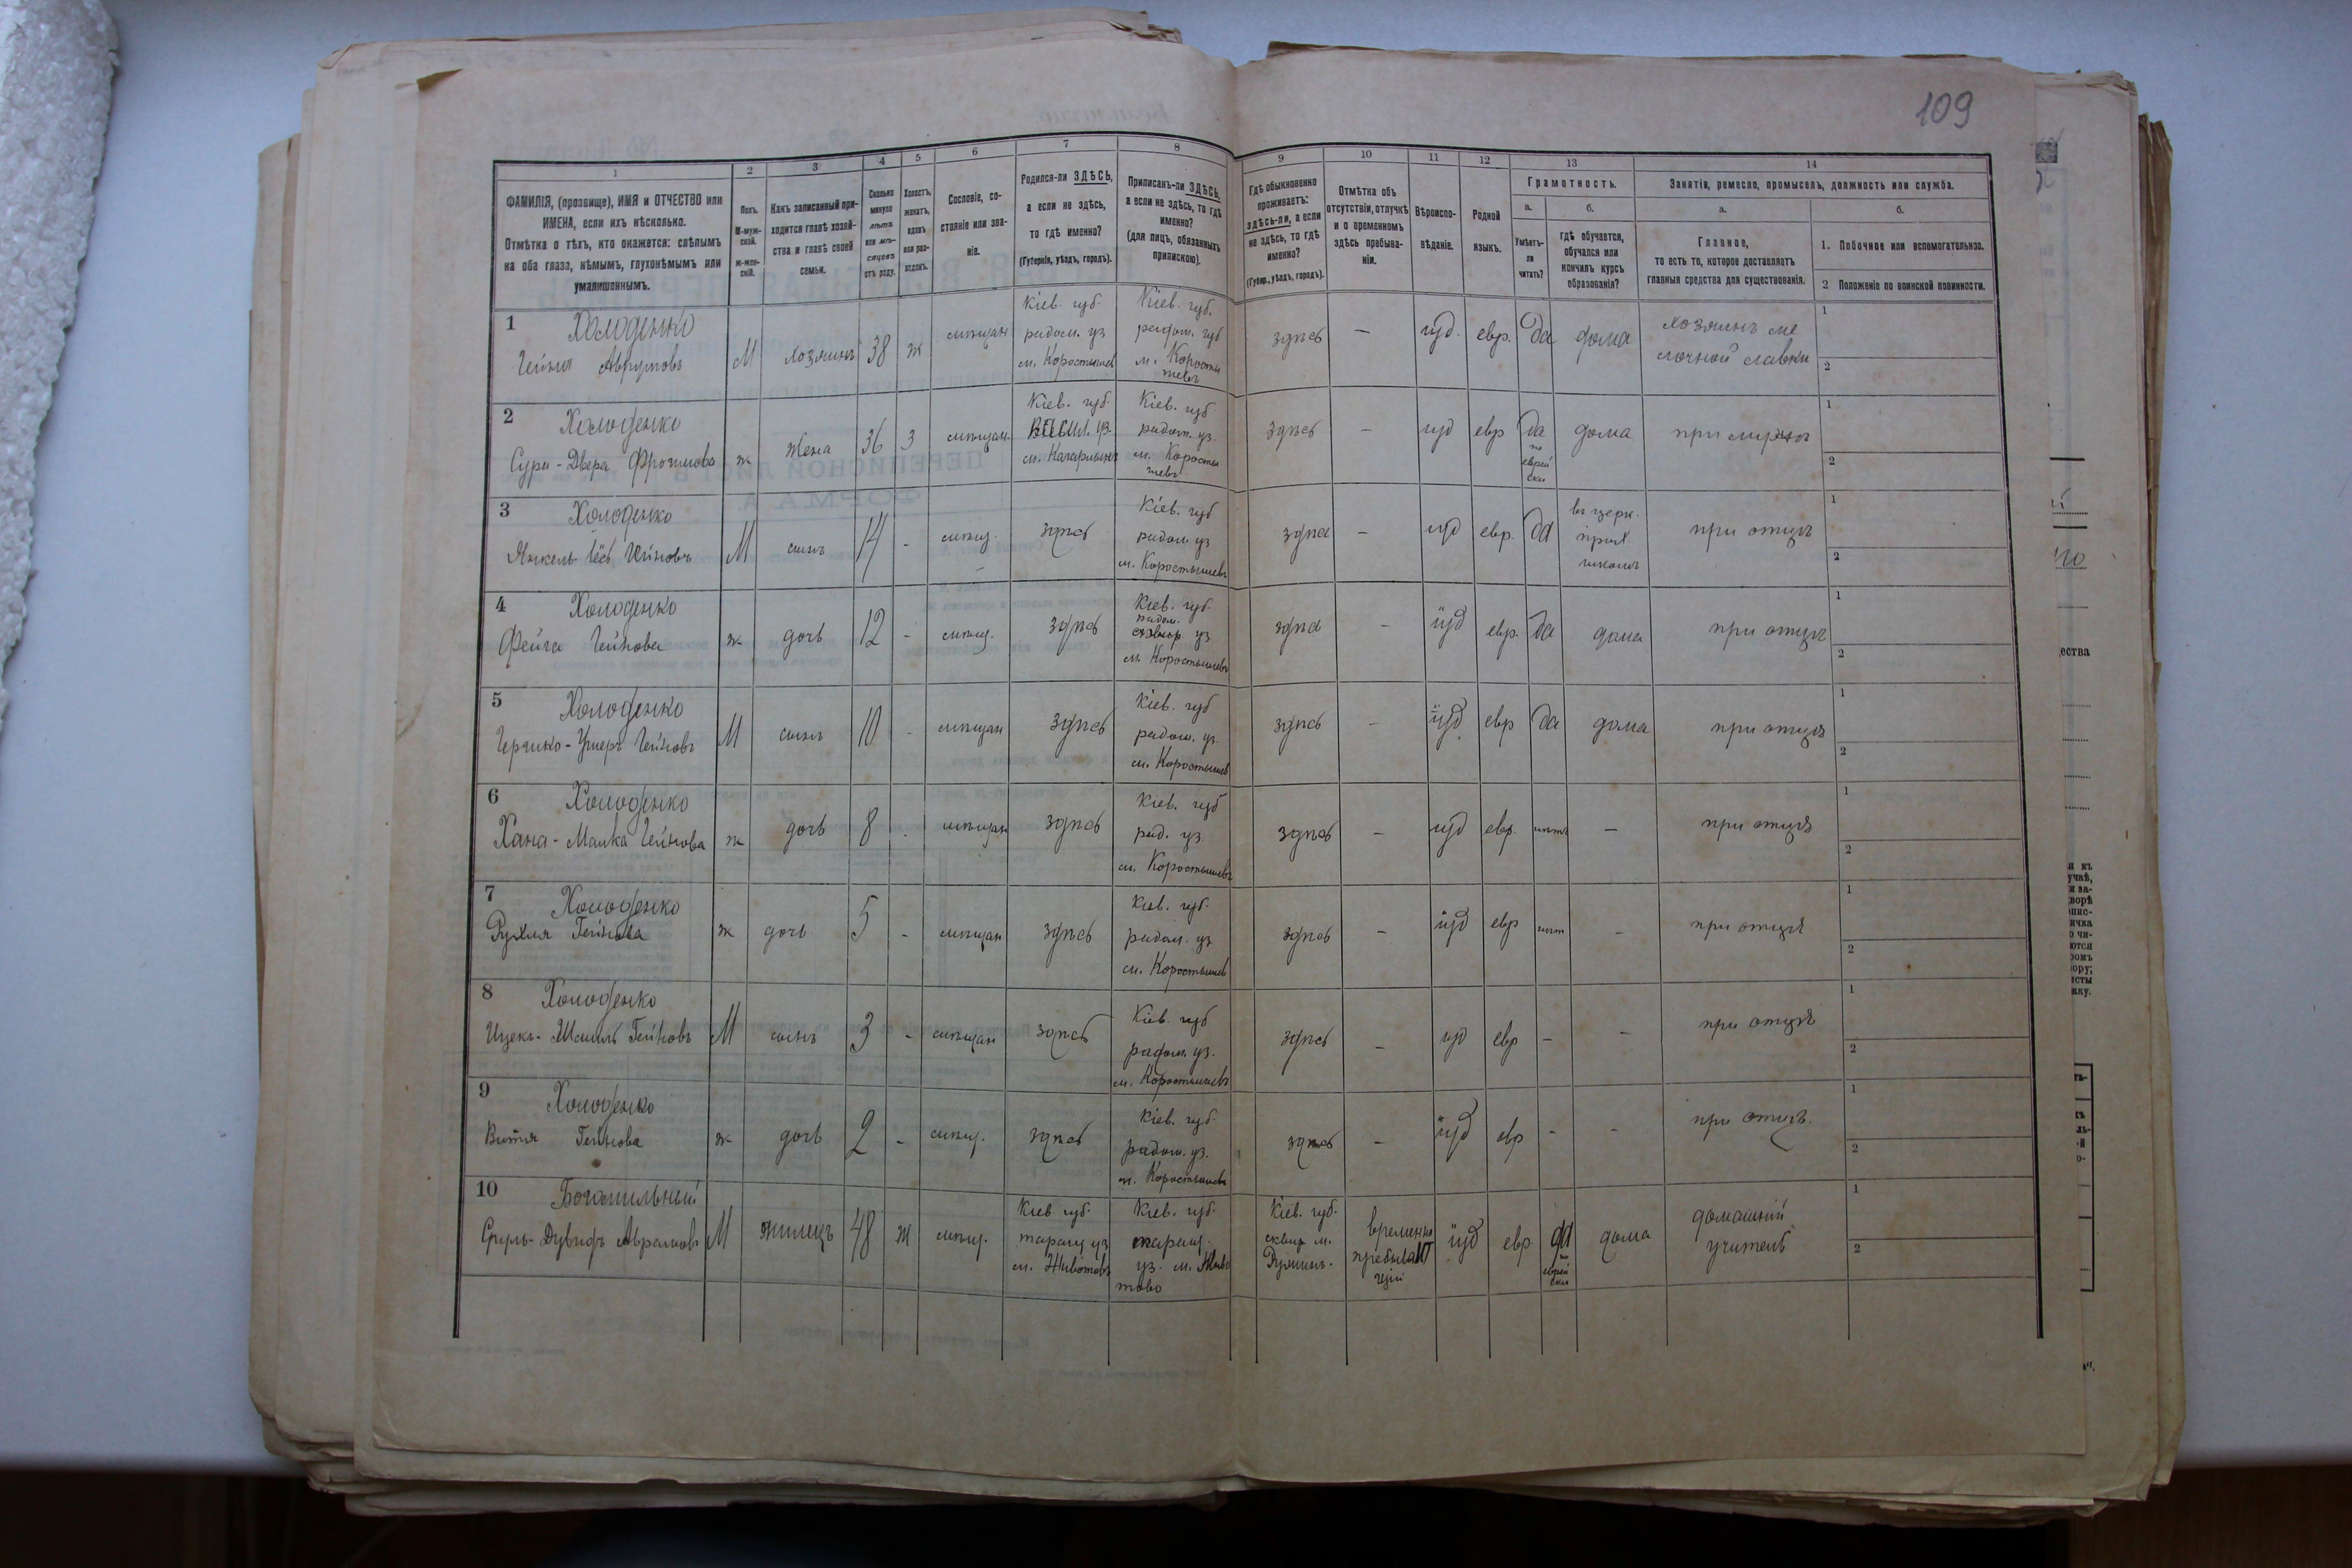 109
1 2 3 4 5 6 7 8 9 10 11 12 13 14
ФАМИЛІЯ, (прозвище), ИМЯ и ОТЧЕСТВО или
ИМЕНА, если ихъ нѣсколько.
Отмѣтка о тѣхъ, кто окажется: слѣпымъ
на оба глаза, нѣмымъ, глухонѣмымъ или
умалишеннымъ.
Полъ.
М-муж-
ской.
ж-жен-
скій.
Какъ записанный при-
ходится главѣ хозяй-
ства и главѣ своей
семьи.
Сколько
минуло
лѣтъ
или мѣ-
сяцевъ
отъ роду.
Холостъ,
женатъ,
вдовъ
или раз-
веденъ.
Сословіе, со-
стояніе или зва-
ніе.
Родился-ли ЗДѢСЬ,
а если не здѣсь,
то гдѣ именно?
(Губернія, уѣздъ, городъ).
Приписанъ-ли ЗДѢСЬ,
а если не здѣсь, то гдѣ
именно?
(для лицъ, обязанныхъ
припискою).
Гдѣ обыкновенно
проживаетъ:
здѣсь-ли, а если
не здѣсь, то гдѣ
именно?
(Губер., уѣздъ, городъ).
Отмѣтка объ
отсутствіи, отлучкѣ
и о временномъ
здѣсь пребыва-
ніи.
Вѣроиспо-
вѣданіе.
Родной
языкъ.
Грамотность.
а.
Умѣетъ-
ли
читать?
б.
гдѣ обучается,
обучался или
кончилъ курсъ
образованія?
Занятія, ремесло, промыселъ, должность или служба.
а.
Главное,
то есть то, которое доставляетъ
главныя средства для существованія.
б.
1. Побочное или вспомогательное.
2 Положеніе по воинской повинности.
1
Холоденко
Аврумовъ
М
хозяинъ
38
ж
мѣщан
Кіев. губ.
радом. уз
м. Коростышев
Кіев. губ.
радом. губ
м. Коросты
шевъ
здѣсь
—
иуд.
евр.
да
дома
хозяинъ ме
лочной лавки
1
2
2
Холоденко
Сура-Двера
ж
жена
36
З
мѣщан.
Кіев. губ.
уз.
м. Кагарлыкъ
Кіев. губ
радом. уз.
м. Коросты
шевъ
здѣсь
—
иуд
евр
да
по
еврей
ски
дома
при мужѣ
1
2
3
Холоденко
Янкель
М
сынъ
14
-
мѣщ.
здѣсь
Кіев. губ
радом уз
м. Коростышевъ
здѣсь
—
иуд
евр.
да
въ церк.
прих.
школѣ
при отцѣ
1
2
4
Холоденко
Фейга
ж
дочь
12
-
мѣщ.
здѣсь
Кіев. губ.
радом.
уз
м. Коростышевъ
здѣсь
—
іуд
евр.
да
дома
при отцѣ
1
2
5
Холоденко
М
сынъ
10
-
мѣщан
здѣсь
Кіев. губ
радом. уз.
м. Коростышев
здѣсь
—
іуд
евр
да
дома
при отцѣ
1
2
6
Холоденко
Хана-Малка
ж
дочь
8
-
мѣщан
здѣсь
Кіев. губ
рад. уз.
м. Коростышевъ
здѣсь
—
иуд
евр.
нѣтъ
—
при отцѣ
1
2
7
Холоденко
Рухля Гейнова
ж
дочь
5
-
мѣщан
здѣсь
Кіев. губ.
радом. уз
м. Коростышев
здѣсь
—
іуд
евр
нѣт
-
при отцѣ
1
2
8
Холоденко
Гейновъ
М
сынъ
3
-
мѣщан
здѣсь
Кіев. губ
радом. уз.
м. Коростышевъ
здѣсь
—
иуд
евр
-
-
при отцѣ
1
2
9
Холоденко
Гейнова
ж
дочь
2
-
мѣщ.
здѣсь
Кіев. губ.
радом. уз.
м. Коростышевъ
здѣсь
—
іуд
евр
-
-
при отцѣ.
1
2
10
Богомильный
М
жилецъ
48
Ж
мѣщ.
Кіев губ.
таращ уз
м. Животовъ
Кіев. губ.
таращ.
уз. м. Живо
тово
Кіев. губ.
сквир м.
Ружинъ.
временно
пребываю
щій
іуд
евр
да
по
еврей
ски
дома
домашній
учитель
1
2